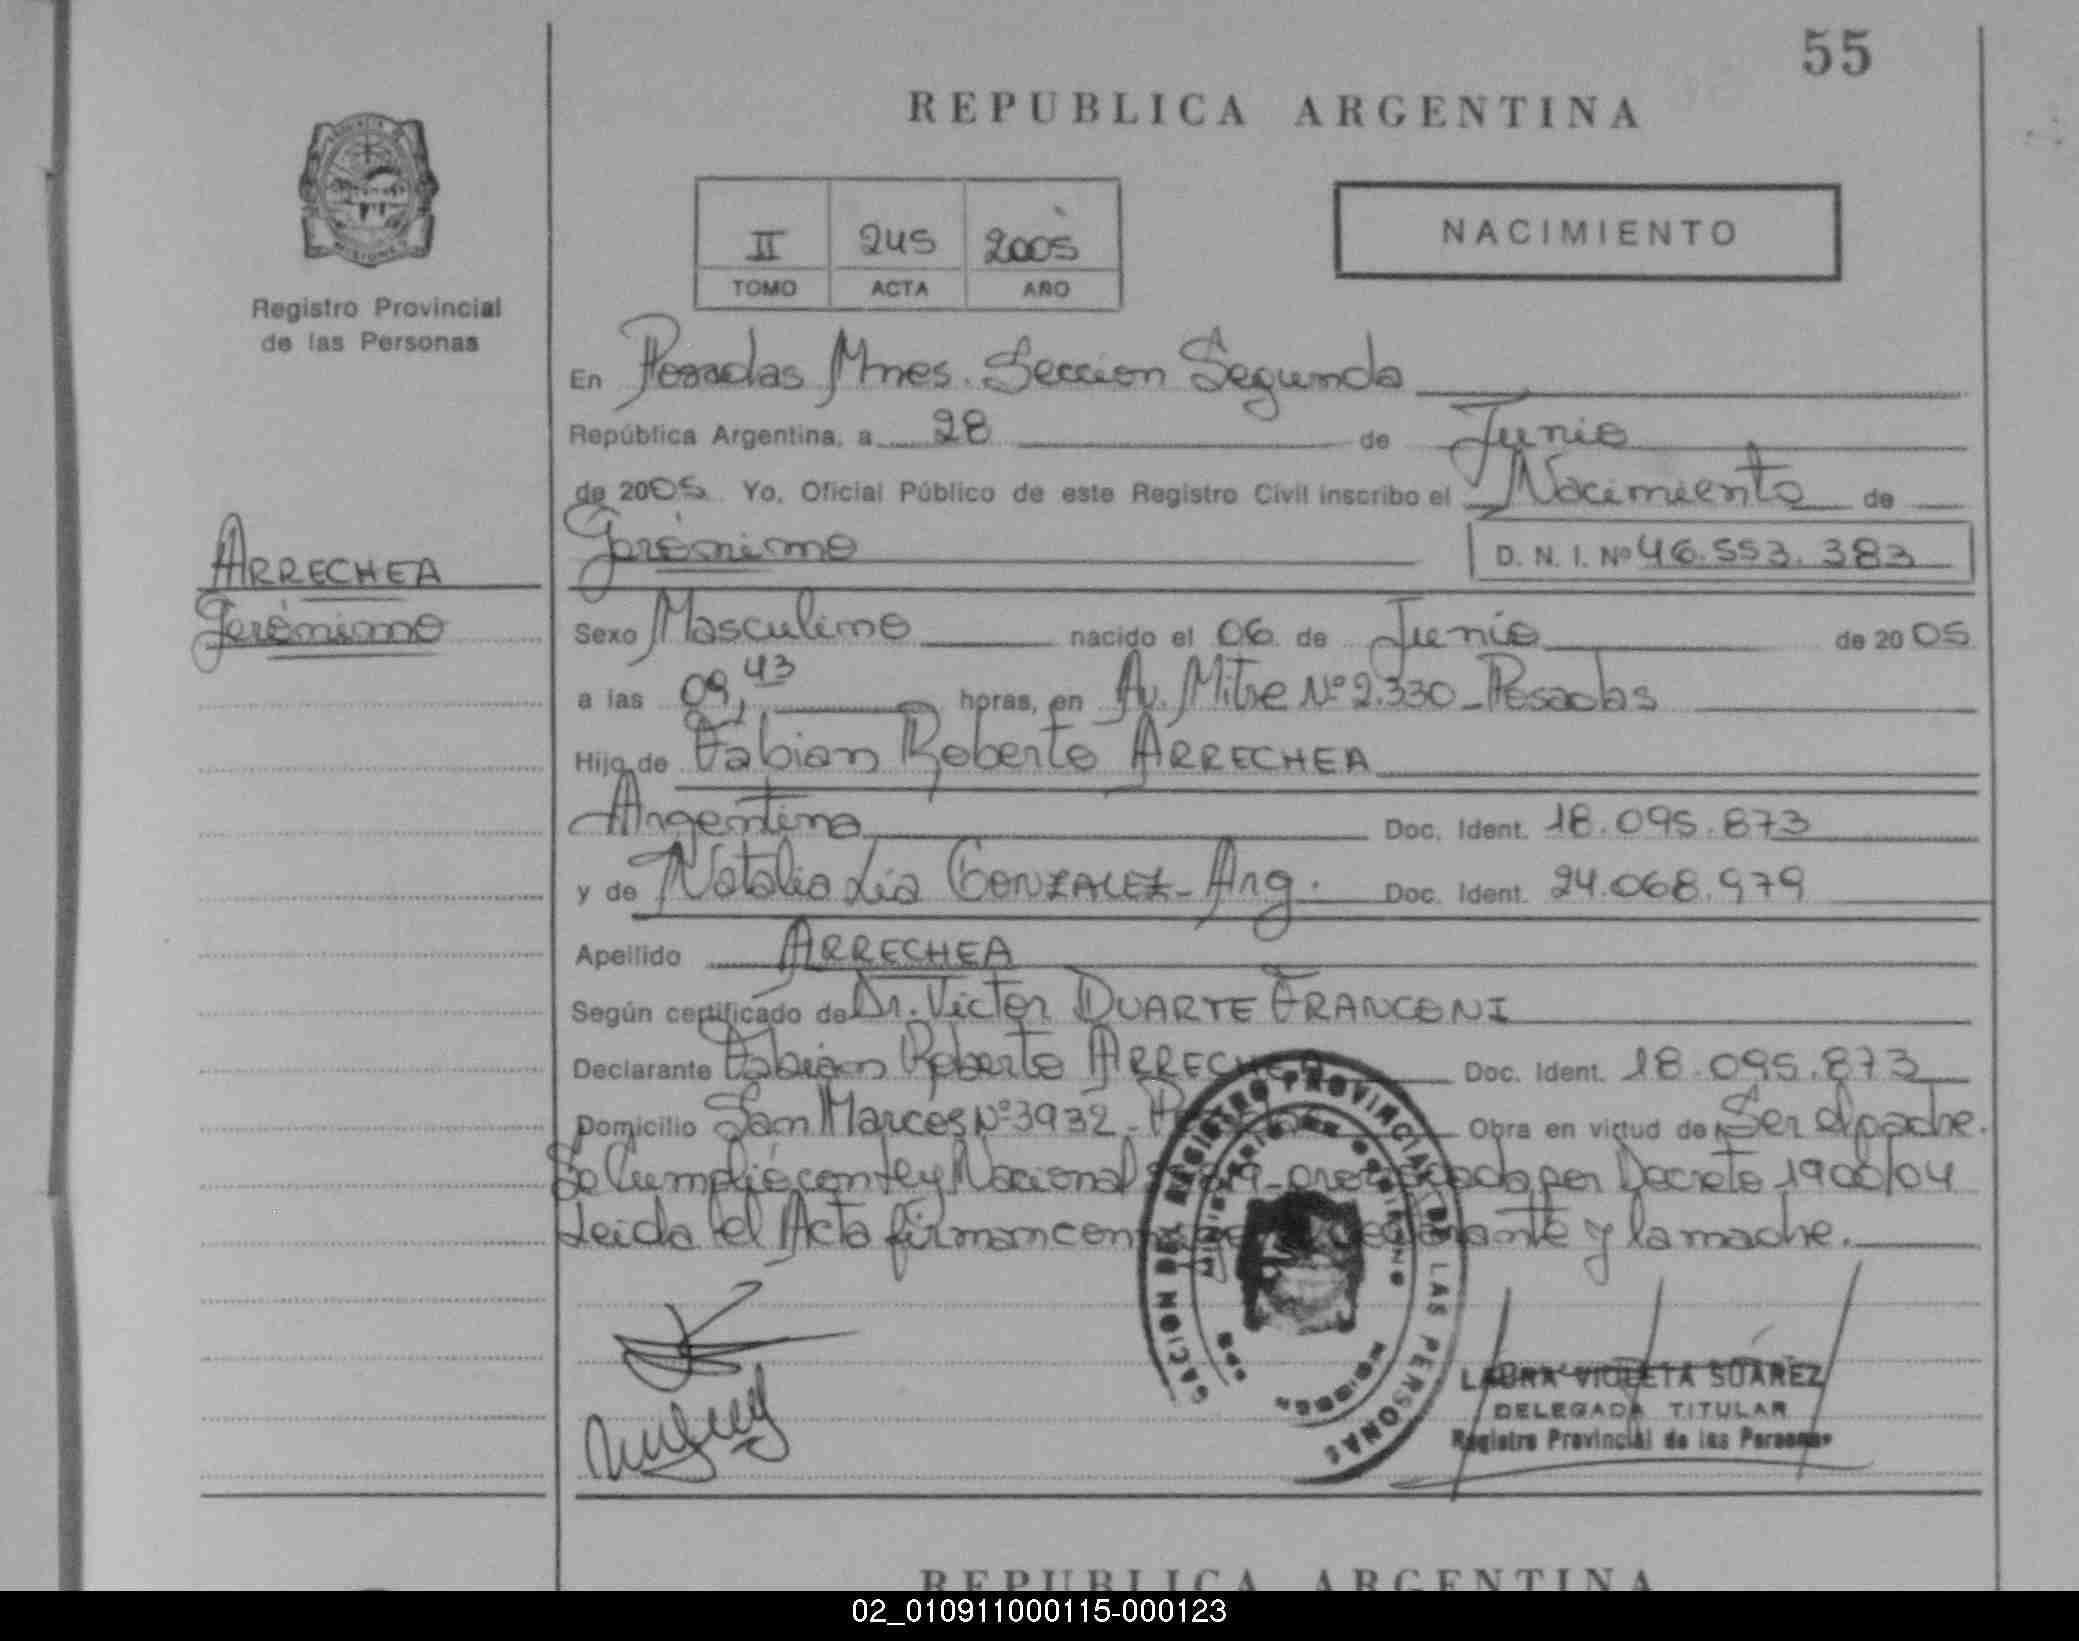 55
REPUBLICA ARGENTINA
Registro Provincial
de las Personas
II 245 2005
TOMO ACTA AÑO
NACIMIENTO
En Posadas Mnes. Seccion Segunda
República Argentina, a 28 de Junio
de 2005 Yo, Oficial Público de este Registro Civil inscribo el Nacimiento de
Gerónimo D. N. I. Nº 46.553.383
ARRECHEA
Gerónimo
Sexo Masculino nacido el 06 de Junio de 2005
a las 09,43 horas, en Av. Mitre Nº 2.330 - Posadas
Hijo de Fabian Roberto ARRECHEA
Argentina Doc. Ident. 18.095.873
y de Natalia Lia GONZALEZ - Arg. Doc. Ident. 24.068.979
Apellido ARRECHEA
Según certificado de Dr. Victor DUARTE FRANCONI
Declarante Fabian Roberto ARRECHEA Doc. Ident. 18.095.873
Domicilio San Marcos Nº 3932 - Obra en virtud de Ser el padre.
Se Cumplió con Ley Nacional por Decreto 1900/04
Leida el Acta firman y la madre.
REGISTRO PROVINCIAL DE LAS PERSONAS
MINISTERIO DE GOBIERNO
LAURA VIOLETA SUAREZ
DELEGADA TITULAR
Registro Provincial de las Personas
REPUBLICA ARGENTINA
02_010911000115-000123